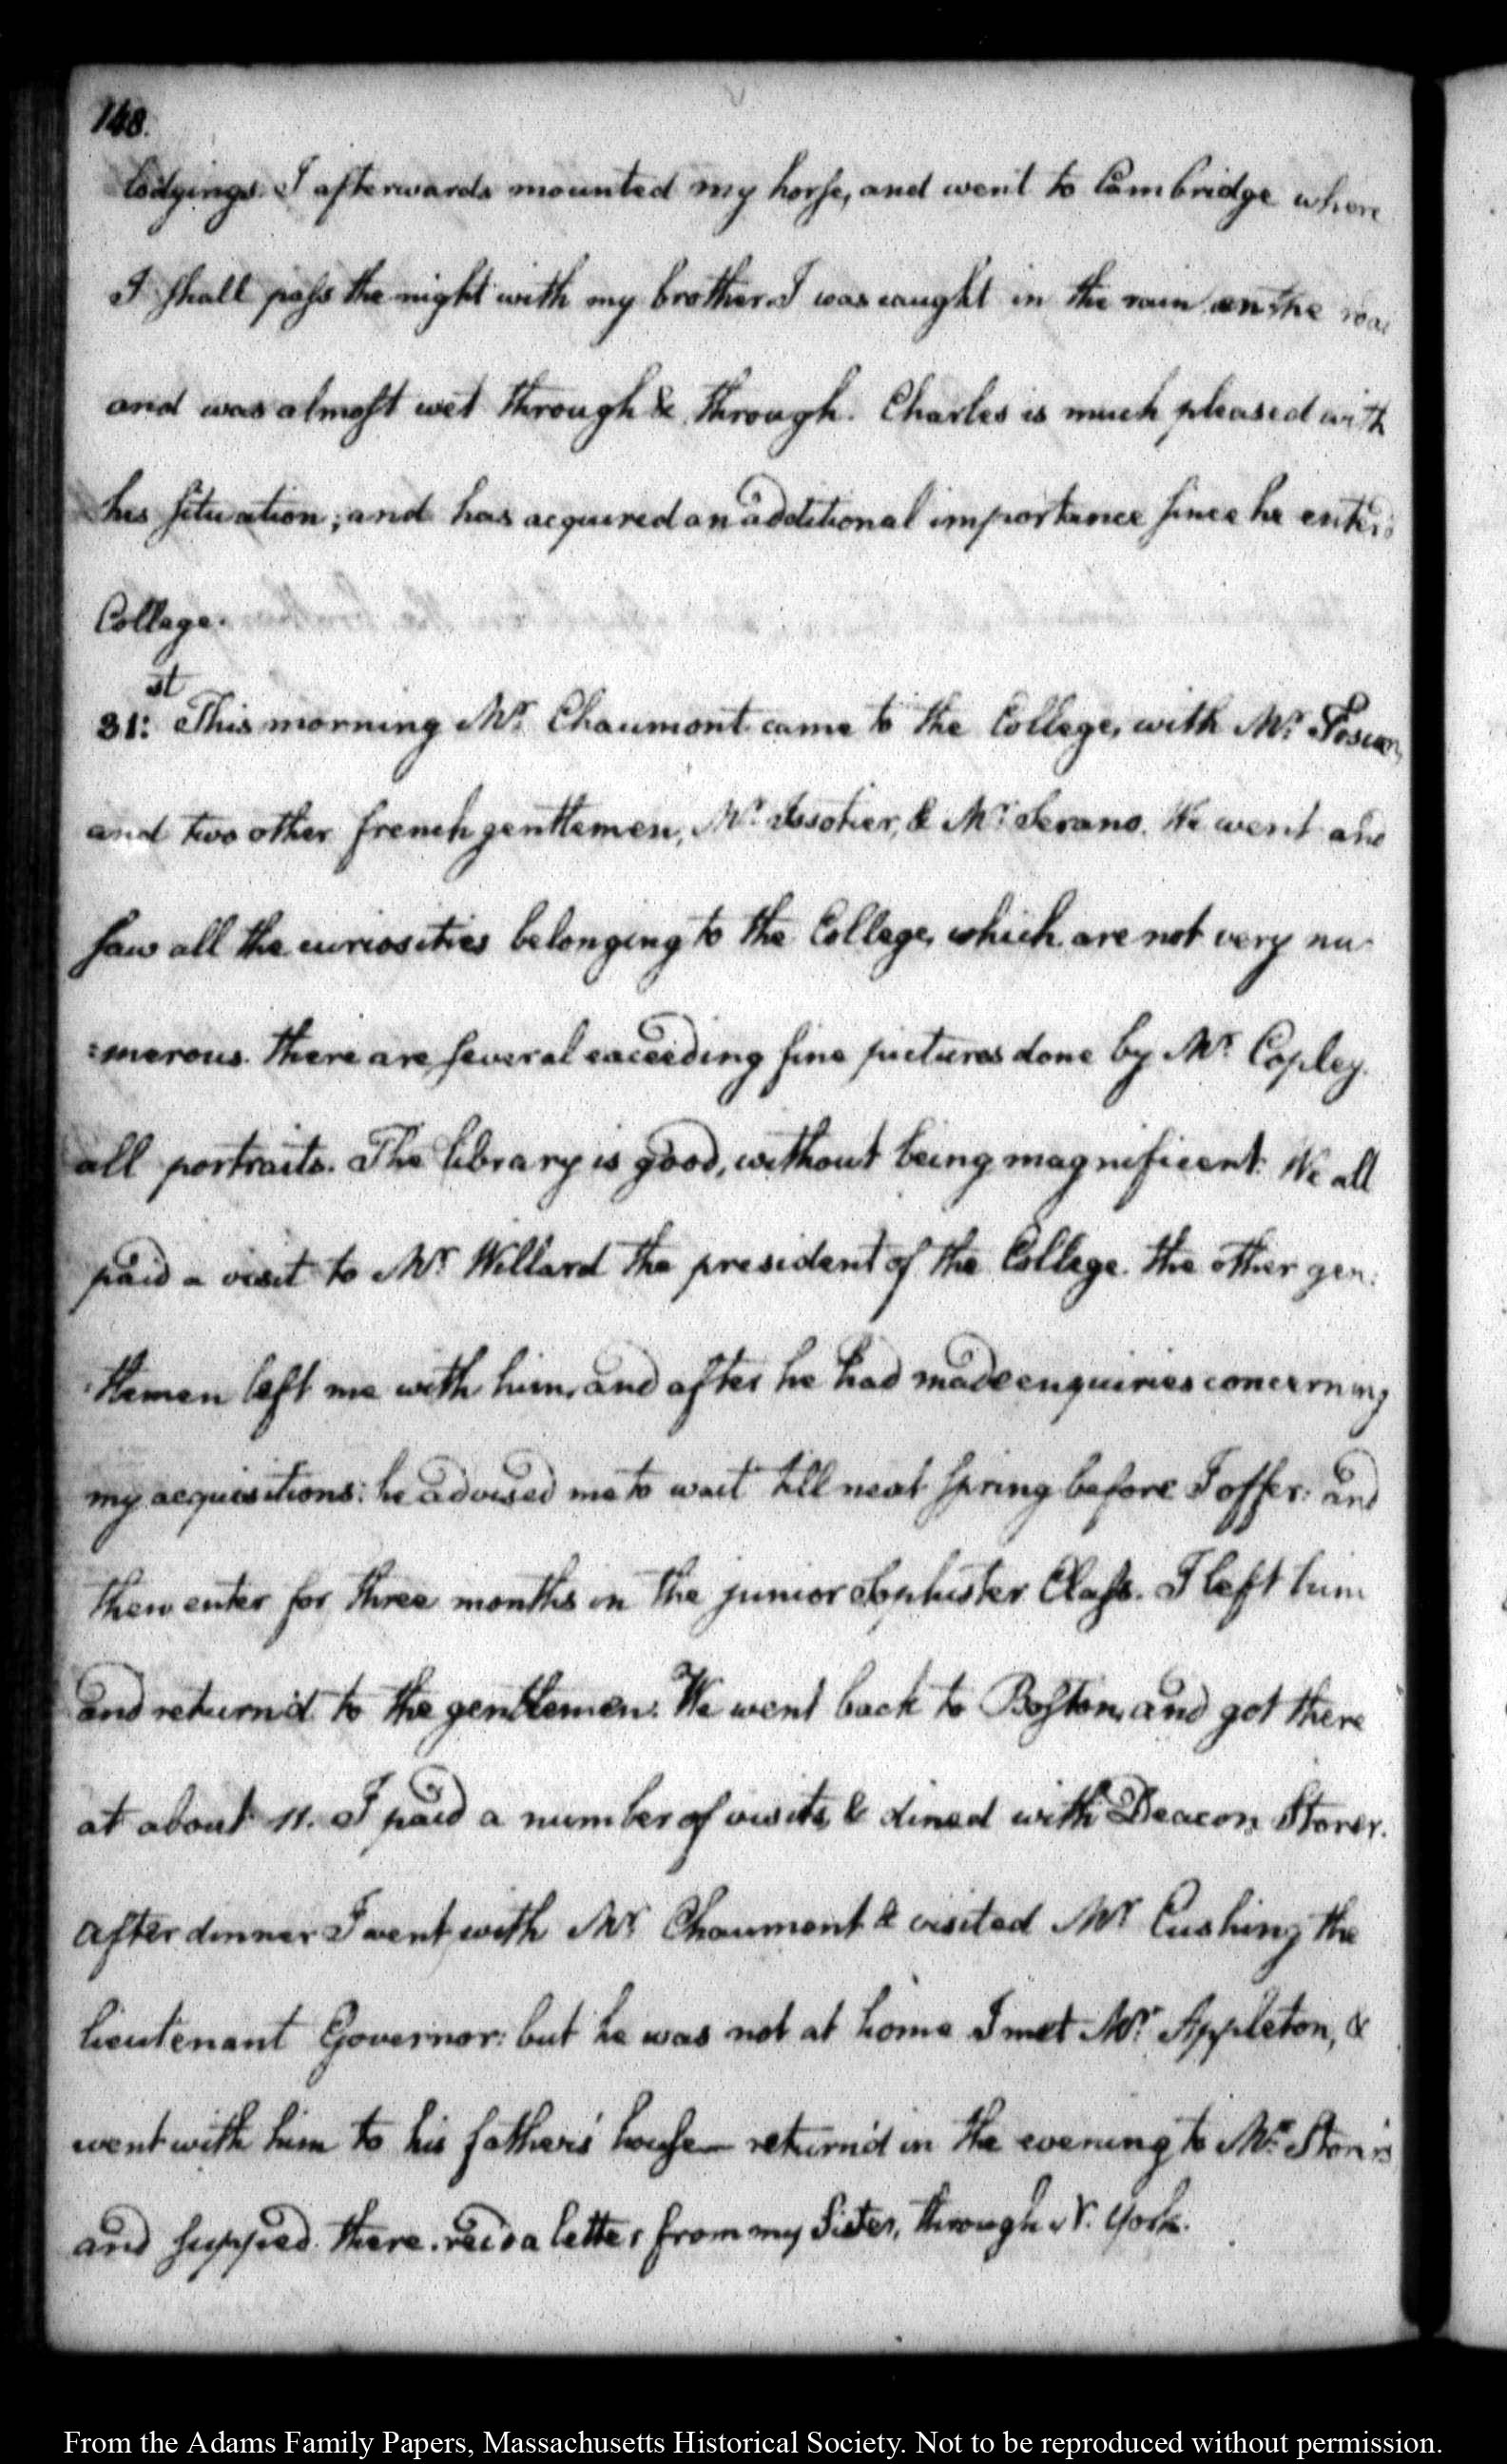 148.
lodgings. I afterwards mounted my horse, and went to Cambridge where
I shall pass the night with my brother. I was caught in the rain on the road
and was almost wet through & through. Charles is much pleased with
his situation; and has acquired an additional importance since he enter'd
College.
31:st This morning Mr. Chaumont came to the College, with Mr.
and two other french gentlemen, Mr. Issotier, & Mr. Serano. We went and
saw all the curiosities belonging to the College, which are not very nu-
=merous. there are several exceeding fine pictures done by Mr. Copley.
all portraits. The library is good, without being magnificent. We all
paid a visit to Mr. Willard the president of the College. the other gen:
:tlemen left me with him, and after he had made enquiries concerning
my acquisitions: he advised me to wait till next Spring before I offer: and
then enter for three months in the junior Sophister Class. I left him
and return'd to the gentlemen. We went back to Boston, and got there
at about 11. I paid a number of visits, & dined with Deacon Storer.
after dinner I went with Mr. Chaumont & visited Mr. Cushing the
lieutenant Governor: but he was not at home I met Mr. Appleton, &
went with him to his father's house— return'd in the evening to Mr. Storer's
and supped there. rec'd a letter from my Sister, through N. York.
From the Adams Family Papers, Massachusetts Historical Society. Not to be reproduced without permission.